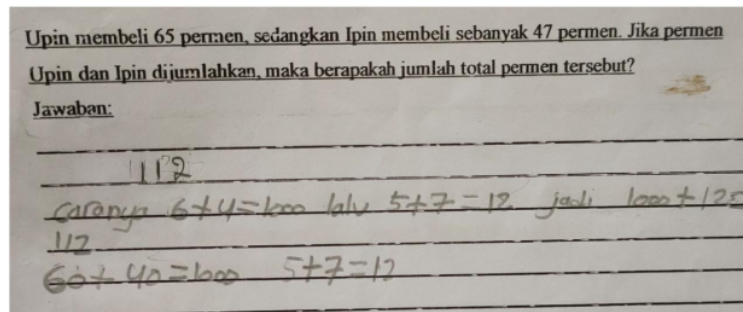 Upin membeli 65 permen, sedangkan Ipin membeli sebanyak 47 permen. Jika permen
Upin dan Ipin dijumlahkan, maka berapakah jumlah total permen tersebut?
Jawaban:
112
caranya 6+4=1000 lalu 5+7=12 jadi 1000+12=
112
60+40=1000 5+7=12